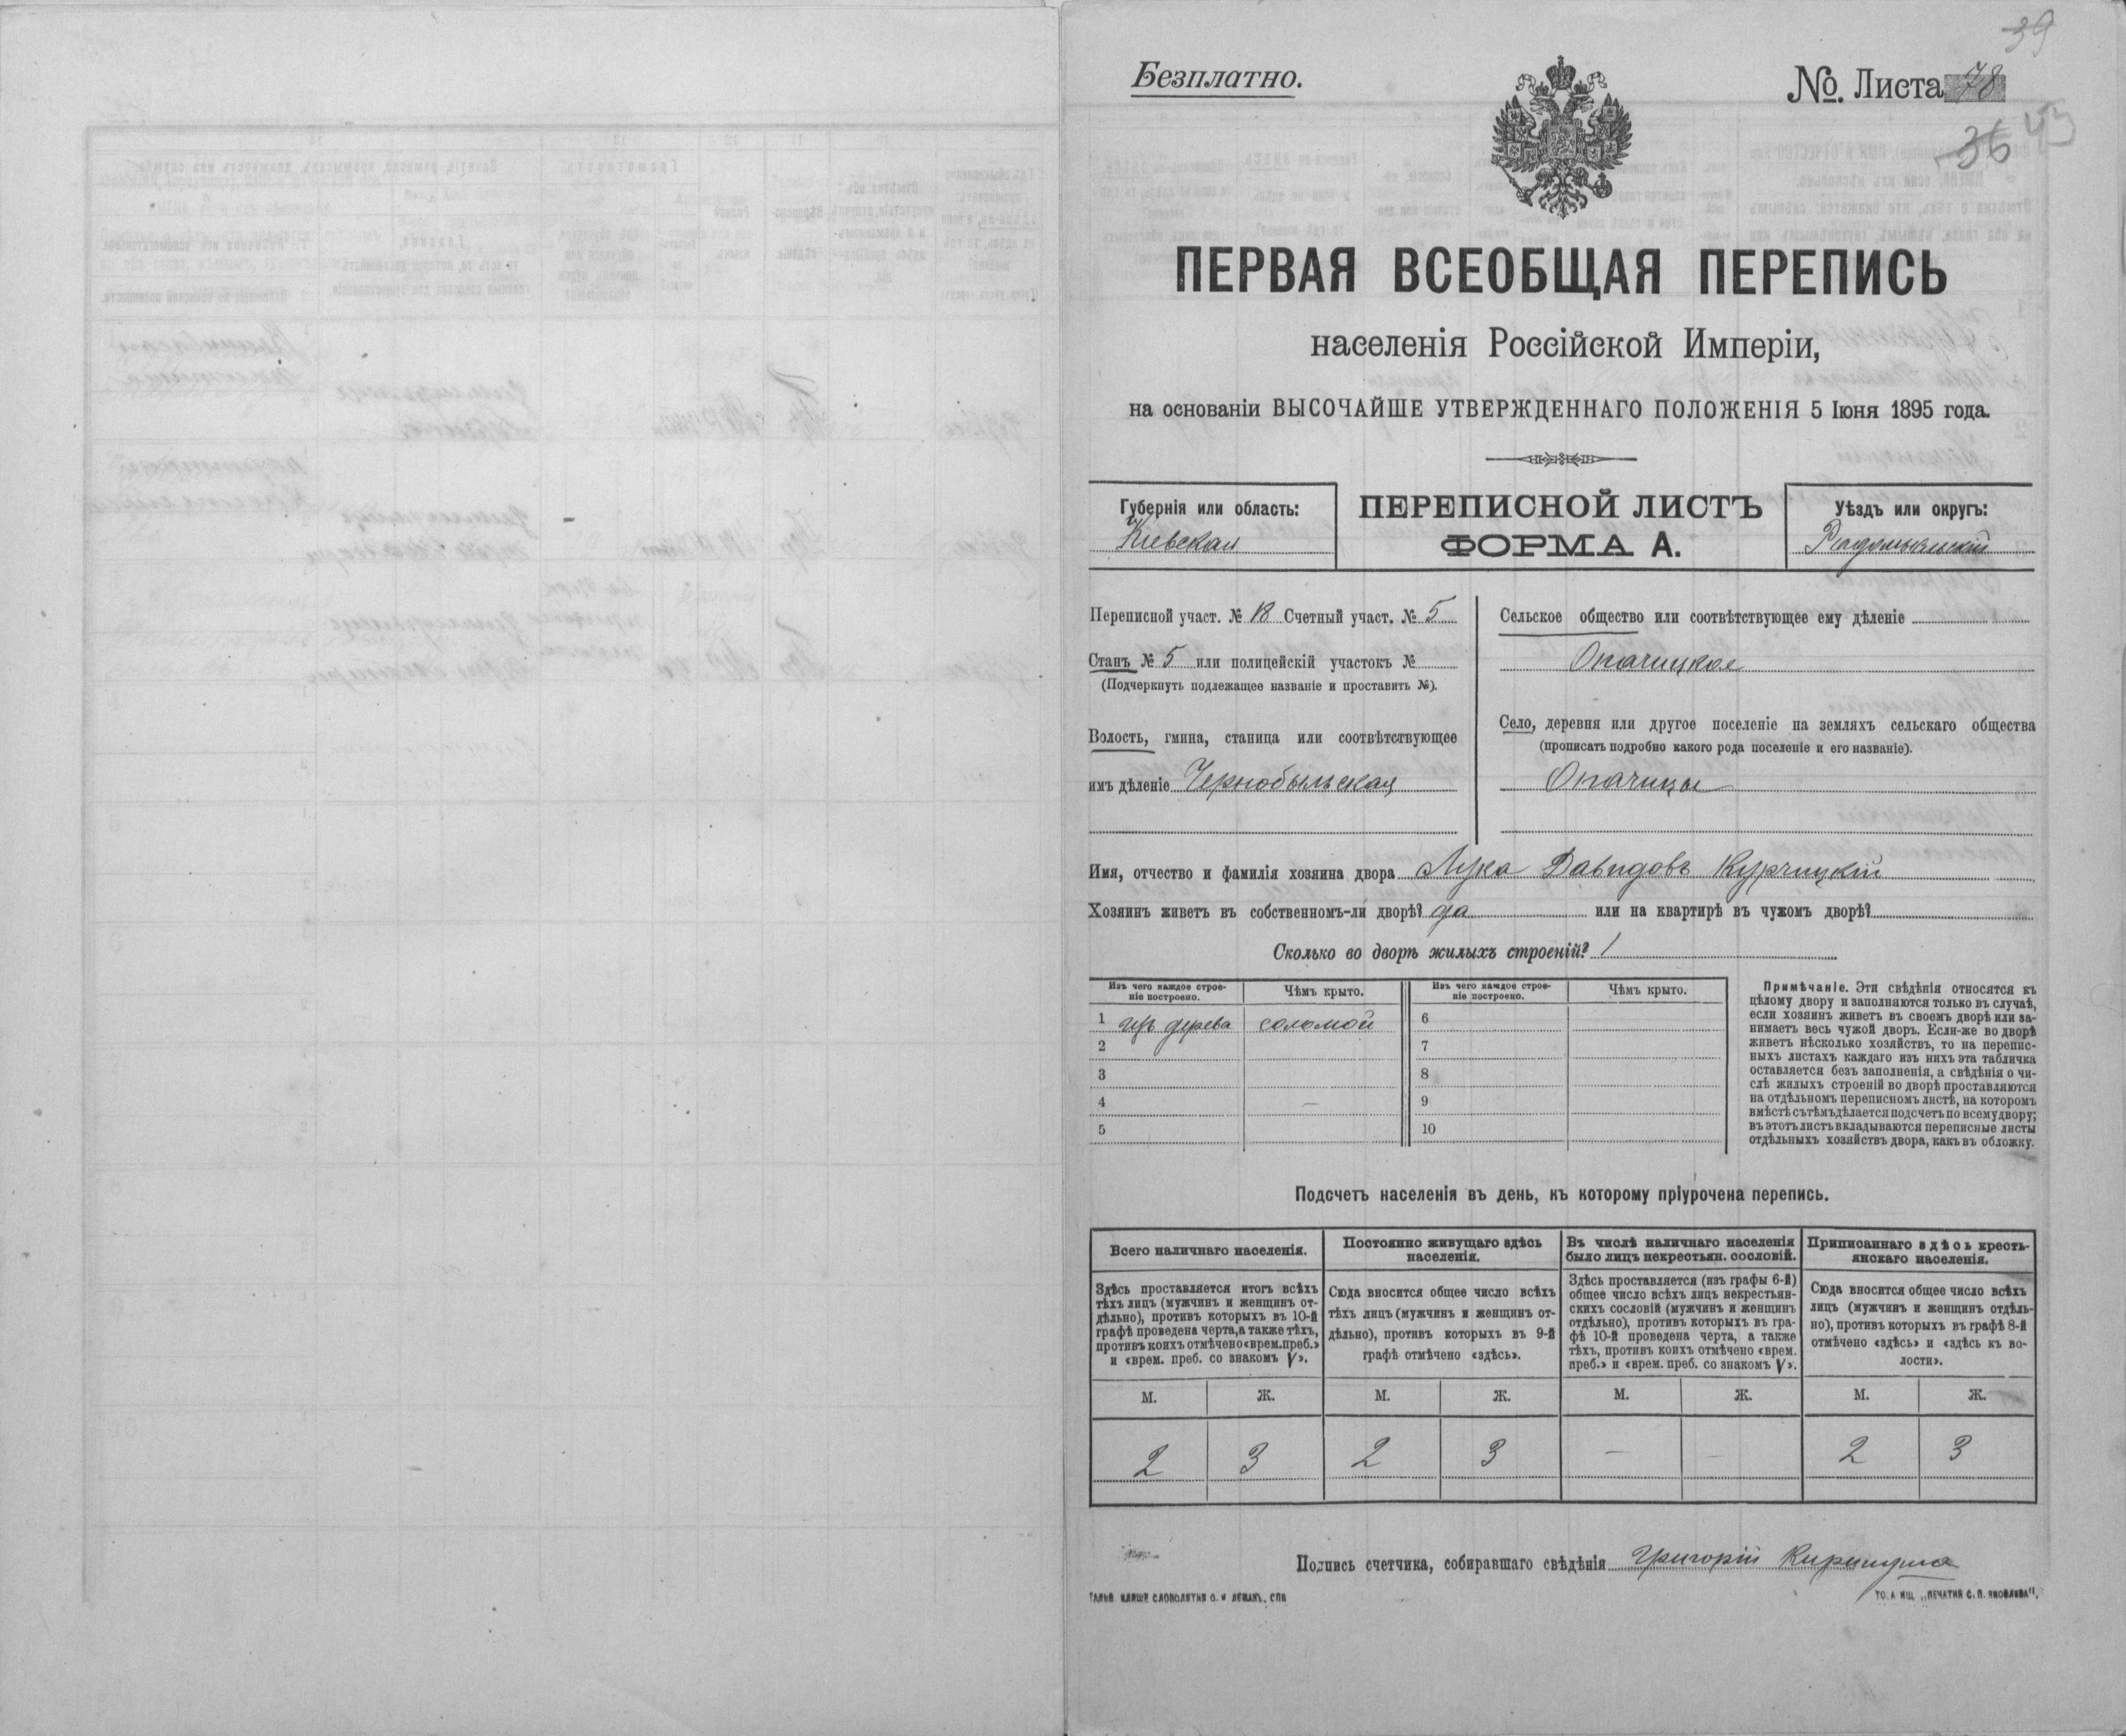 39
Безплатно.
№ Листа 78
36 43
ПЕРВАЯ ВСЕОБЩАЯ ПЕРЕПИСЬ
населенія Россійской Имперіи,
на основаніи ВЫСОЧАЙШЕ УТВЕРЖДЕННАГО ПОЛОЖЕНІЯ 5 Іюня 1895 года.
Губернія или область:
Кіевская
ПЕРЕПИСНОЙ ЛИСТЪ
ФОРМА А.
Уѣздъ или округъ:
Радомысльскій
Переписной участ. № 18 Счетный участ. № 5
Станъ № 5 или полицейскій участокъ №
(Подчеркнуть подлежащее названіе и проставить №).
Волость, гмина, станица или соотвѣтствующее
имъ дѣленіе Чернобыльская
Сельское общество или соотвѣтствующее ему дѣленіе
Опачицкое
Село, деревня или другое поселеніе на земляхъ сельскаго общества
(прописать подробно какого рода поселеніе и его названіе).
Опачицы
Имя, отчество и фамилія хозяина двора Лука Давидовъ Курчицкій
Хозяинъ живетъ въ собственномъ-ли дворѣ? да или на квартирѣ въ чужомъ дворѣ?
Сколько во дворѣ жилыхъ строеній? 1
Изъ чего каждое строе-
ніе построено.
Чѣмъ крыто.
Изъ чего каждое строе-
ніе построено.
Чѣмъ крыто.
1 изъ дерева соломой 6
2 7
3 8
4 — 9
5 10
Примѣчаніе. Эти свѣдѣнія относятся къ
цѣлому двору и заполняются только въ случаѣ,
если хозяинъ живетъ въ своемъ дворѣ или за-
нимаетъ весь чужой дворъ. Если-же во дворѣ
живетъ нѣсколько хозяйствъ, то на перепис-
ныхъ листахъ каждаго изъ нихъ эта табличка
оставляется безъ заполненія, а свѣдѣнія о чи-
слѣ жилыхъ строеній во дворѣ проставляются
на отдѣльномъ переписномъ листѣ, на которомъ
вмѣстѣ съ тѣмъ дѣлается подсчетъ по всему двору;
въ этотъ листъ вкладываются переписные листы
отдѣльныхъ хозяйствъ двора, какъ въ обложку.
Подсчетъ населенія въ день, къ которому пріурочена перепись.
Всего наличнаго населенія.
Здѣсь проставляется итогъ всѣхъ
тѣхъ лицъ (мужчинъ и женщинъ от-
дѣльно), противъ которыхъ въ 10-й
графѣ проведена черта, а также тѣхъ,
противъ коихъ отмѣчено «врем. преб.»
и «врем. преб. со знакомъ V».
Постоянно живущаго здѣсь
населенія.
Сюда вносится общее число всѣхъ
тѣхъ лицъ (мужчинъ и женщинъ от-
дѣльно), противъ которыхъ въ 9-й
графѣ отмѣчено «здѣсь».
Въ числѣ наличнаго населенія
было лицъ некрестьян. сословій.
Здѣсь проставляется (изъ графы 6-й)
общее число всѣхъ лицъ некрестьян-
скихъ сословій (мужчинъ и женщинъ
отдѣльно), противъ которыхъ въ гра-
фѣ 10-й проведена черта, а также
тѣхъ, противъ коихъ отмѣчено «врем.
преб.» и «врем. преб. со знакомъ V».
Приписаннаго здѣсь кресть-
янскаго населенія.
Сюда вносится общее число всѣхъ
лицъ (мужчинъ и женщинъ отдѣль-
но), противъ которыхъ въ графѣ 8-й
отмѣчено «здѣсь» и «здѣсь къ во-
лости».
М. Ж. М. Ж. М. Ж. М. Ж.
2 3 2 3 — — 2 3
Подпись счетчика, собиравшаго свѣдѣнія Григорій
СЛОВОЛИТНЯ О. И. ЛЕМАНЪ. СПБ
„ПЕЧАТНЯ С. П. ЯКОВЛЕВА".